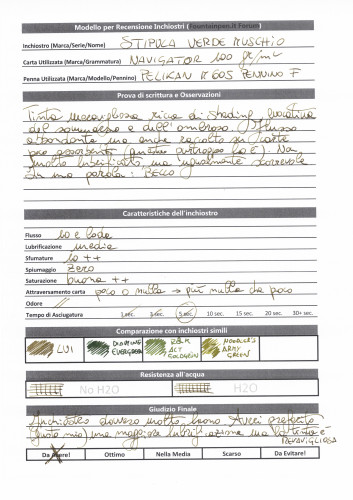 Modello per Recensione Inchiostri (Fountainpen.it Forum)
Inchiostro (Marca/Serie/Nome) STIPULA VERDE MUSCHIO
Carta Utilizzata (Marca/Grammatura) NAVIGATOR 100 gr/m²
Penna Utilizzata (Marca/Modello/Pennino) PELIKAN M605 PENNINO F
Prova di scrittura e Osservazioni
Tinta meravigliosa ricca di shading,
del sommerso e dell'ombroso. Flusso
abbondante ma anche su carte
più assorbenti (questa purtroppo lo è). Non
molto lubrificato ma ugualmente scorrevole
In una parola: BELLO
Caratteristiche dell'inchiostro
Flusso 10 e lode
Lubrificazione media
Sfumature 10 ++
Spiumaggio zero
Saturazione buona ++
Attraversamento carta poco o nulla → più nulla che poco
Odore /
Tempo di Asciugatura 1 sec. 3 sec. 5 sec. 10 sec. 15 sec. 20 sec. 30+ sec.
Comparazione con inchiostri simili
LUI DIAMINE EVERGREEN R&K ALT GOLDGRÜN NOODLER'S ARMY GREEN
Resistenza all'acqua
No H2O H2O
Giudizio Finale
Inchiostro davvero molto buono. Avrei preferito
(gusto mio) una maggiore lubrificazione ma la tinta è
MERAVIGLIOSA
Da Avere! Ottimo Nella Media Scarso Da Evitare!